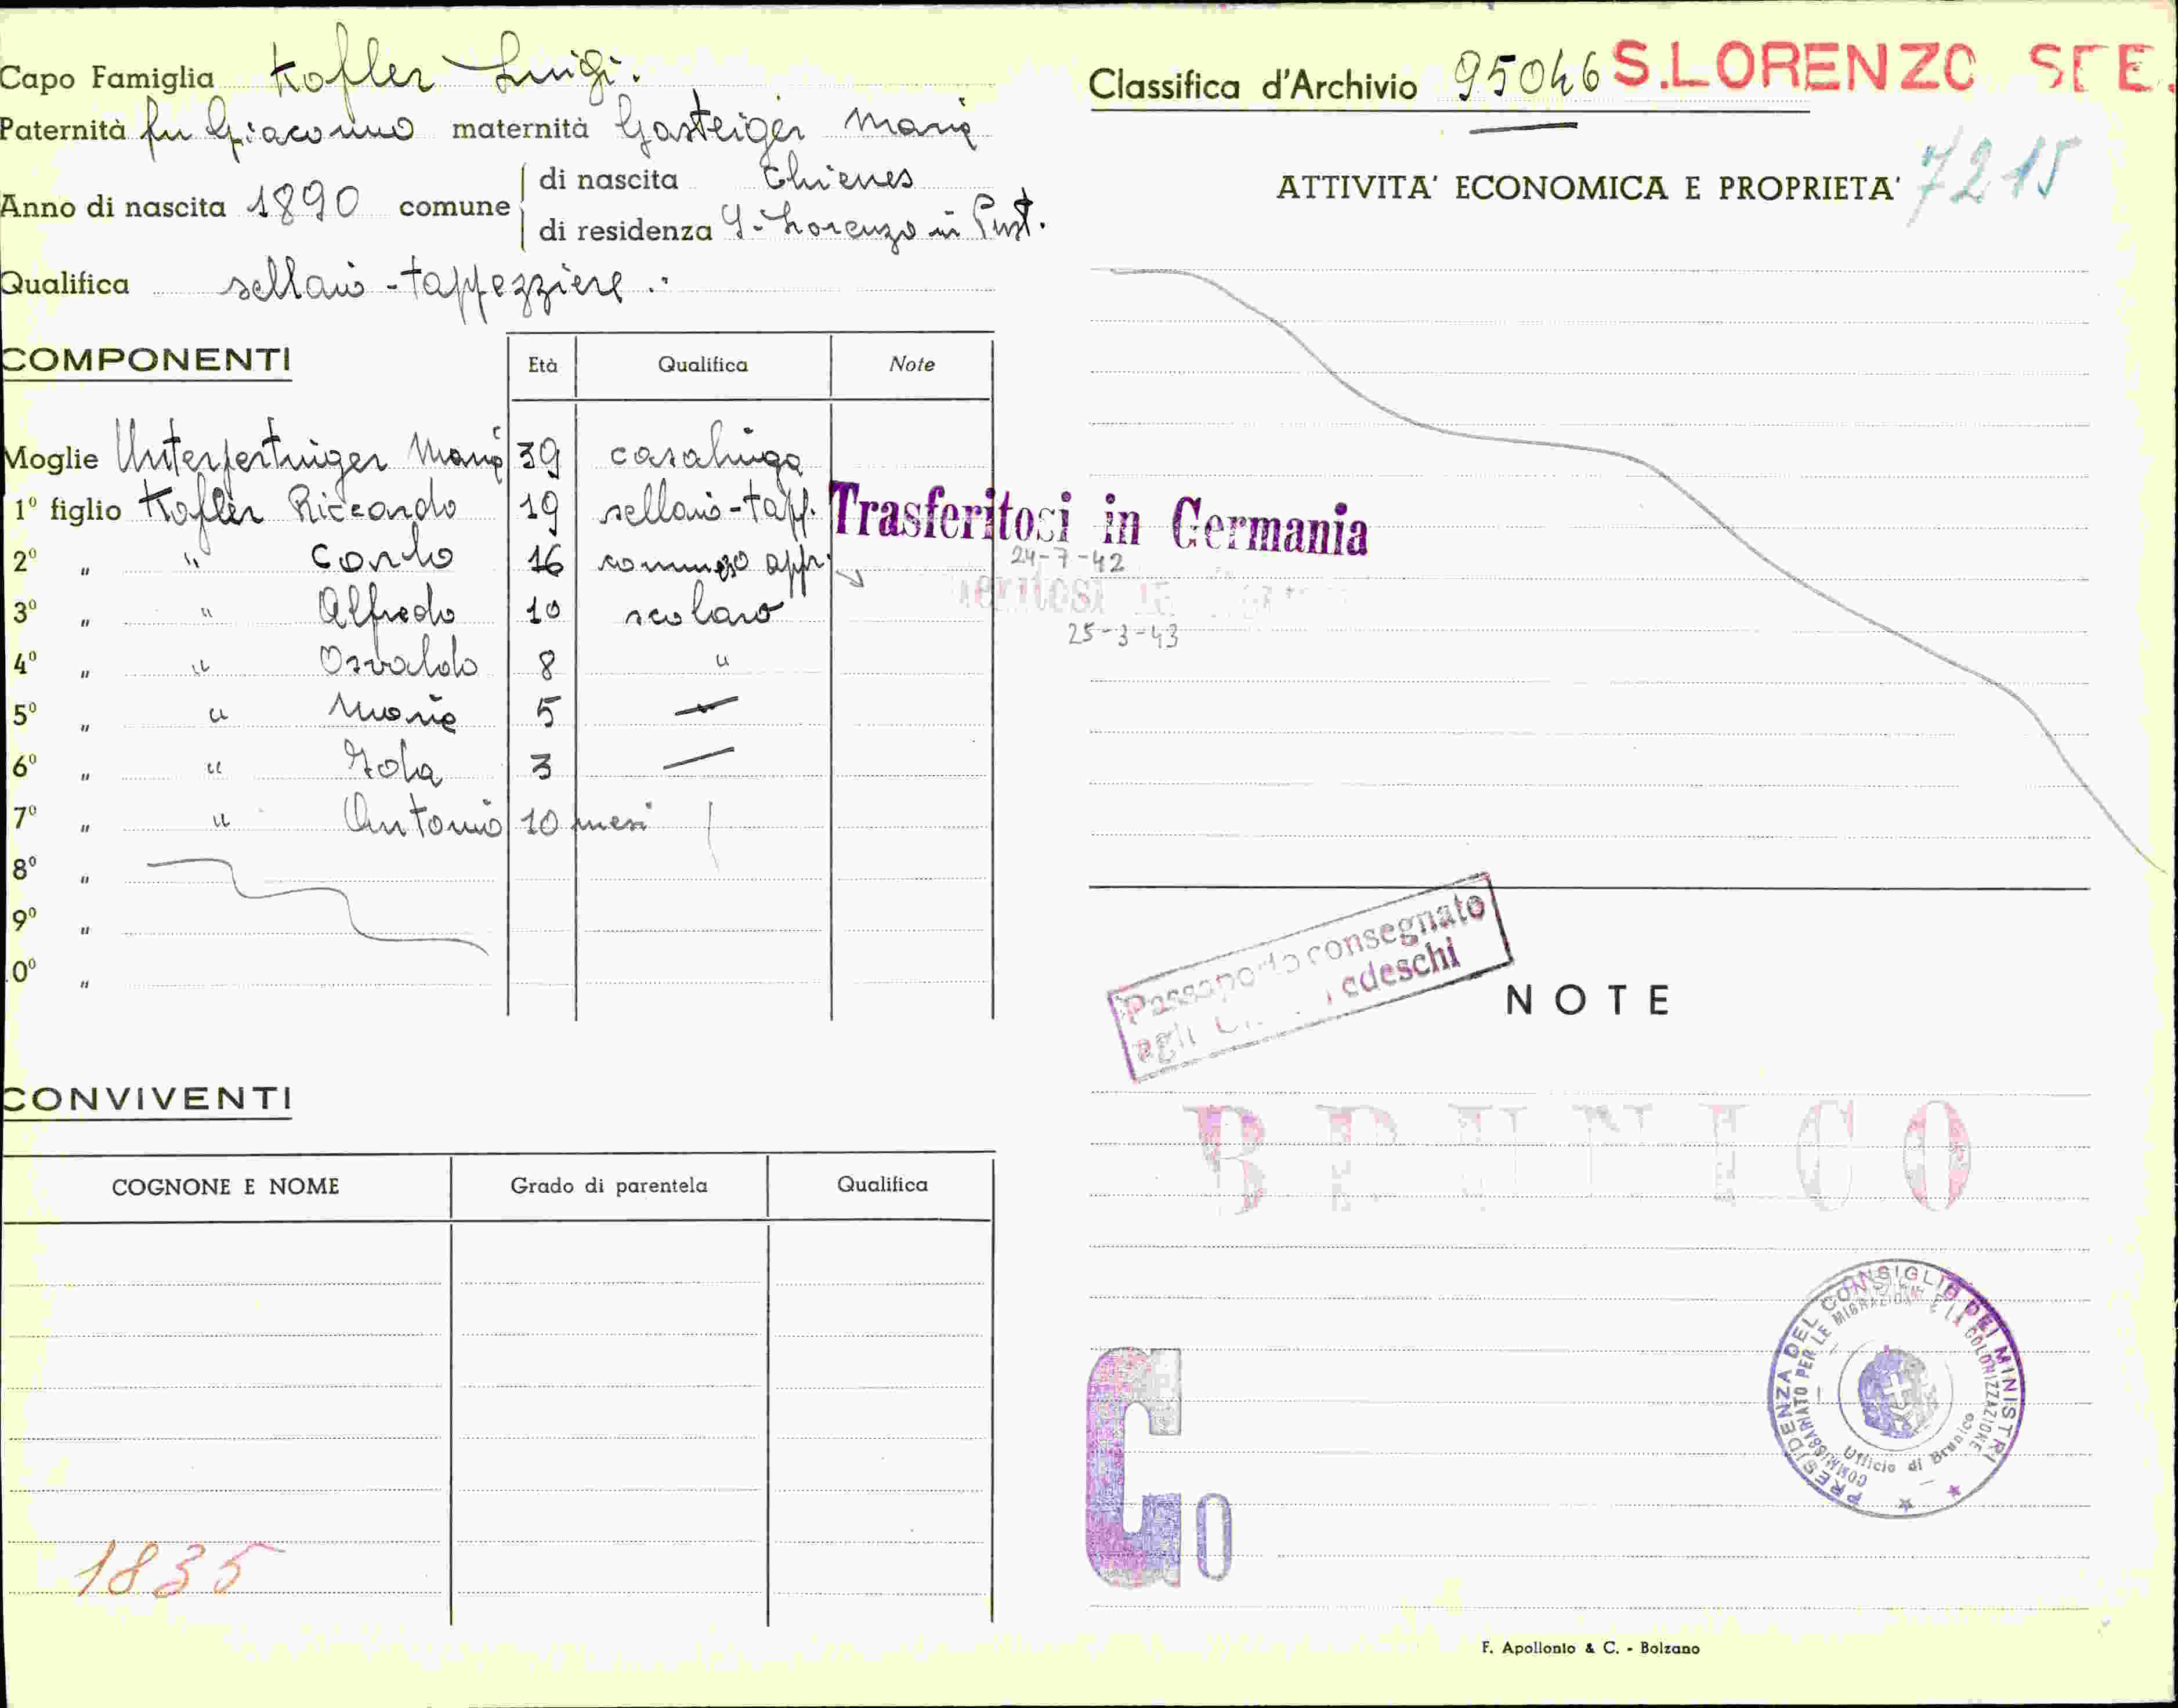 Capo Famiglia Kofler Luigi.
Paternità fu Giacomo maternità Gasteiger Maria
Anno di nascita 1890 comune di nascita Chienes
di residenza S. Lorenzo in Pust.
Qualifica sellaio-tappezziere.
COMPONENTI Età Qualifica Note
Moglie Unterpertinger Maria 39 casalinga
1° figlio Kofler Riccardo 19 sellaio-tapp.
2° " " Carlo 16 commesso appr.
3° " " Alfredo 10 scolaro
4° " " Osvaldo 8 "
5° " " Maria 5 —
6° " " 3 —
7° " " Antonio 10 mesi
8° "
9° "
0° "
CONVIVENTI
COGNONE E NOME Grado di parentela Qualifica
1835
Classifica d'Archivio 95046 S.LORENZO
ATTIVITA' ECONOMICA E PROPRIETA' 7215
Trasferitosi in Germania
24-7-42
25-3-43
Passaporto consegnato
agli tedeschi
NOTE
BRUNICO
PRESIDENZA DEL CONSIGLIO DEI MINISTRI
COMMISSARIATO PER LE MIGRAZIONI E LA COLONIZZAZIONE
Ufficio di Brunico
Co
F. Apollonio & C. - Bolzano